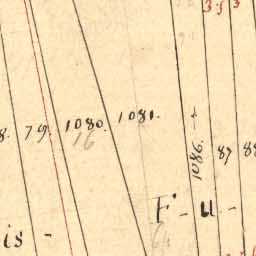 3.5 3
8. 79. 1080. 1081.
16
1086. 87 88
F - u -
is -